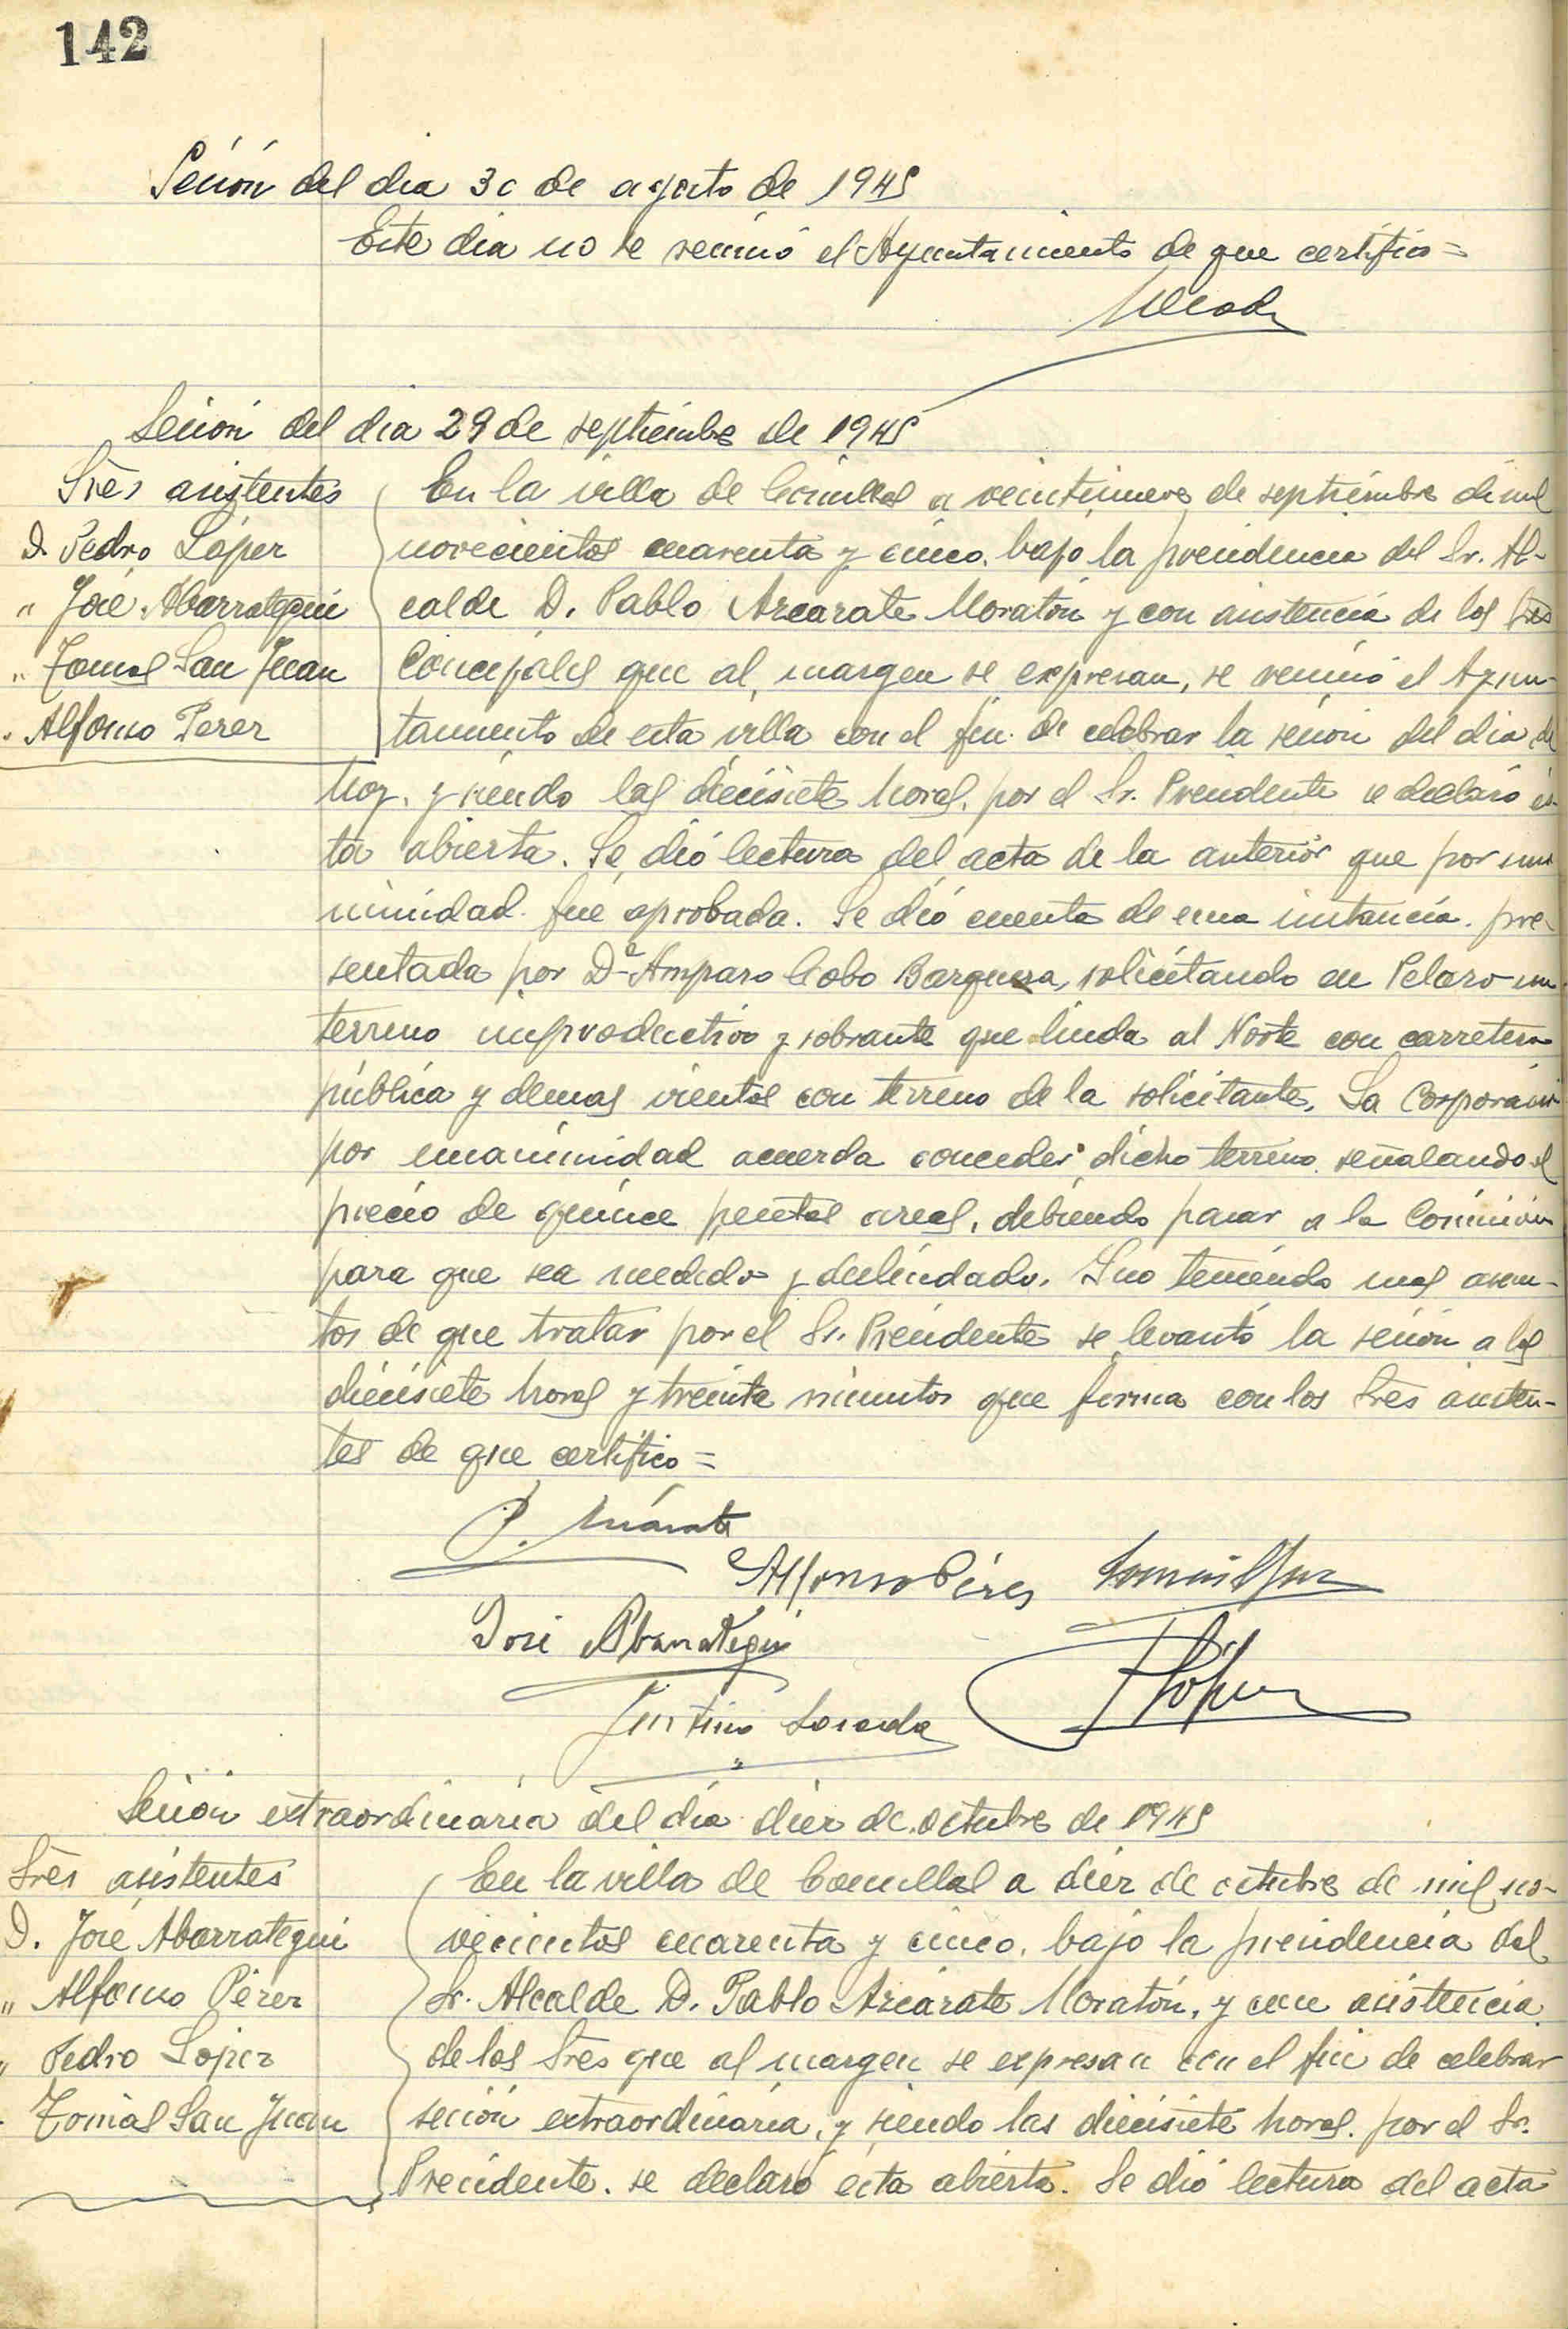 142
Sesión del dia 30 de agosto de 1945
Este dia no se reunió el Ayuntamiento de que certifico=
Sesión del dia 29 de septiembre de 1945
Sres asistentes
D. Pedro López
" José Abarrategui
" Tomas San Juan
" Alfonso Perez
En la villa de Comillas a veintinueve de septiembre de mil
novecientos cuarenta y cinco, bajo la presidencia del Sr. Al-
calde D. Pablo Azcarate Moratón y con asistencia de los Sres
Concejales que al margen se expresan, se reunió el Ayun-
tamiento de esta villa con el fin de celebrar la sesión del dia de
hoy, y siendo las diecisiete horas, por el Sr. Presidente se declaró és-
ta abierta. Se dió lectura del acta de la anterior que por una
nimidad fué aprobada. Se dió cuenta de una instancia pre-
sentada por Dª Amparo Cobo Barquera, solicitando en Pelazo un
terreno improductivo y sobrante que linda al Norte con carretera
pública y demas vientos con terreno de la solicitante. La Corporación
por unanimidad acuerda conceder dicho terreno señalando el
precio de quince pesetas area, debiendo pasar a la Comisión
para que sea medido y deslindado. Y no teniendo mas asun-
tos de que tratar por el Sr. Presidente se levantó la sesión a las
diecisiete horas y treinta minutos que firma con los Sres asisten-
tes de que certifico=
P. Azcárate
Alfonso Pérez
José Abarrategui
P López
Sesión extraordinaria del día diez de octubre de 1945
Sres asistentes
D. José Abarrategui
" Alfonso Pérez
" Pedro López
" Tomás San Juan
En la villa de Comillas a diez de octubre de mil no-
vecientos cuarenta y cinco, bajo la presidencia del
Sr. Alcalde D. Pablo Azcárate Moratón, y con asistencia
de los Sres que al margen se expresan con el fin de celebrar
sesión extraordinaria, y siendo las diecisiete horas, por el Sr.
Presidente, se declaró esta abierta. Se dió lectura del acta